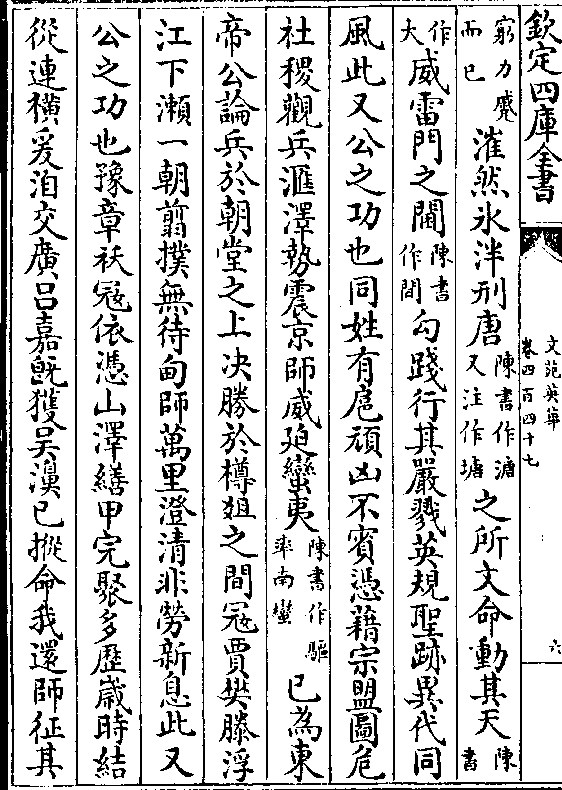 欽定四庫全書
文苑英華
卷四百四十七
六
窮力蹙而已漼然氷泮刑唐陳書作溏又注作塘之所文命動其天陳書
作大威雷門之閫陳書作間勾踐行其嚴戮英規聖跡異代同
風此又公之功也同姓有扈頑凶不賓憑藉宗盟圖危
社稷觀兵滙澤勢震京師威廹蠻夷陳書作驅率南蠻已為東
帝公論兵於朝堂之上决勝於樽俎之間冦賈樊滕浮
江下瀬一朝翦撲無待甸師萬里澄清非勞新息此又
公之功也豫章祅冦依憑山澤繕甲完聚多歷嵗時結
從連横爰洎交廣吕嘉旣獲吴濞已摐命我還師征其